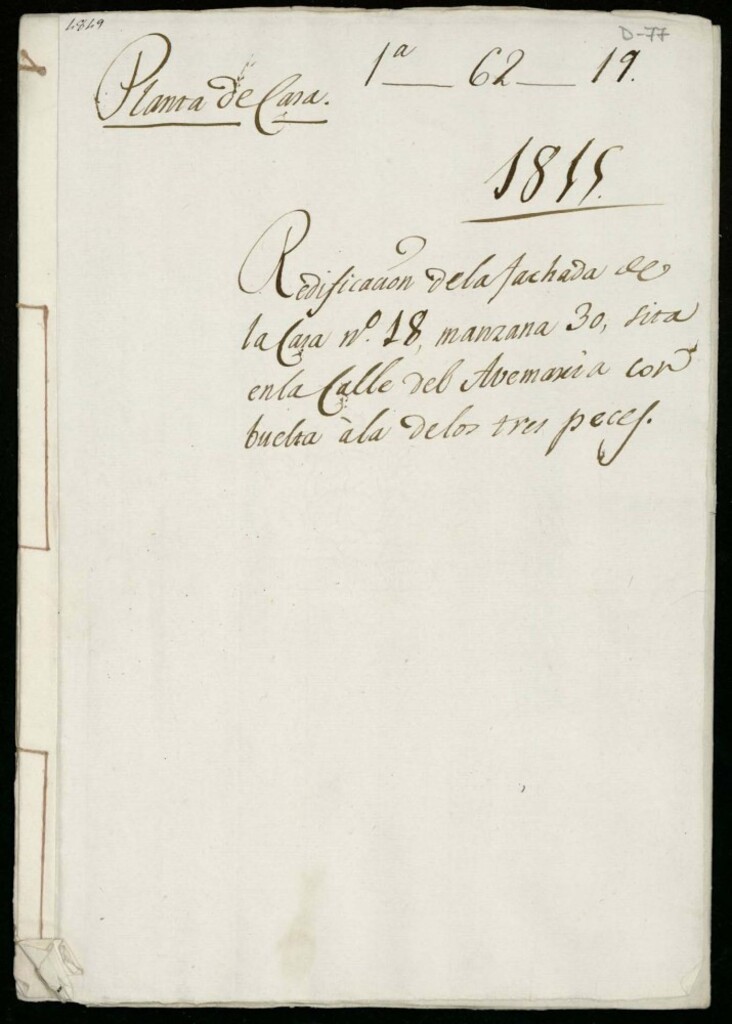 1.8.1.9
D-77
Planta de Casa.
1ª — 62 — 19.
1815.
Redificacion de la fachada de
la Casa nº. 18, manzana 30, sita
en la Calle del Avemaria con
buelta à la de los tres peces.